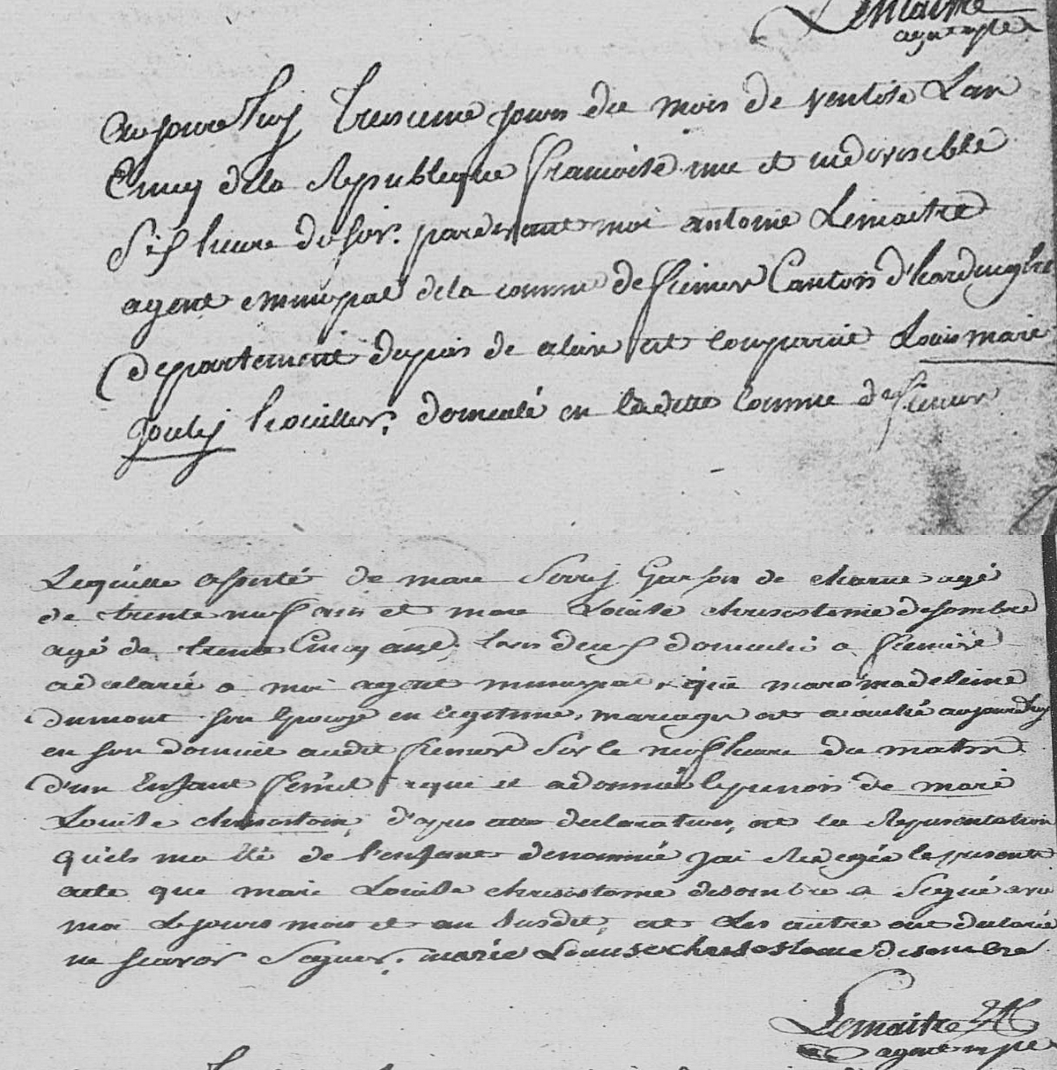 Lemaitre
agent mple
aujourehuy treiseme jours du mois de ventose Lan
Cinq dela Republique francoise une et indivisible
Sis heure du soir. pardevant moi antoine Lemaitre
agent municipal dela comune de fiennes Canton d'hardinghe
departement du pas de calais est comparue Louis marie
houiller, domicilé en laditte comune de fiennes
Lequelle assisté de marc garson de charue agé
de trente neuf ans et marie Louise chrisostome desombre
agé de trente Cinq ans, tous deux domicilié a fiennes
a declarié a moi agent municipal, que marie madeleine
dumont son Epouse en legitime, mariages est acouchée aujourdhuy
en son domicile audit fiennes Sur le neuf heure du matin
d'un Enfant femel, a qui et adonnée le prenois de marie
Louise chrisostome, d'apres cette declaration, et la Representation
quils ma été de l'enfant denommé jai Redegée le presente
acte que marie Louise chrisostome desombre a Signé avec
moi Le jours mois et an Susdit, et Les autre ont declarié
ne scavoir Signer. marie Louise chrisostome desombre
Lemaitre
agent mple